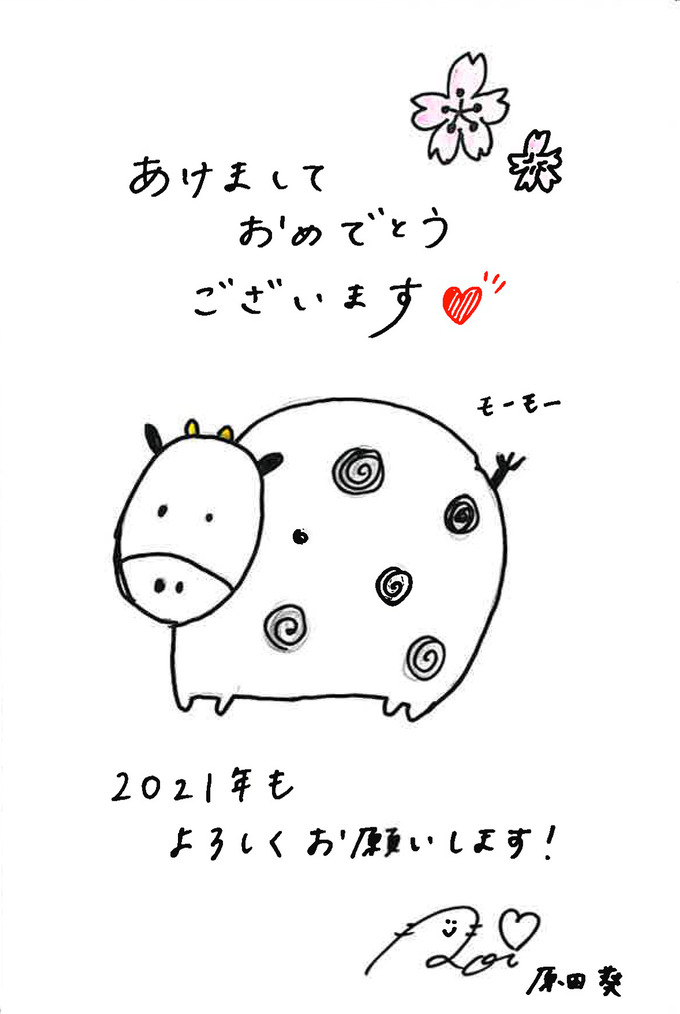 あけまして
おめでとう
ございます
モーモー
2021年も
よろしくお願いします!
原田葵